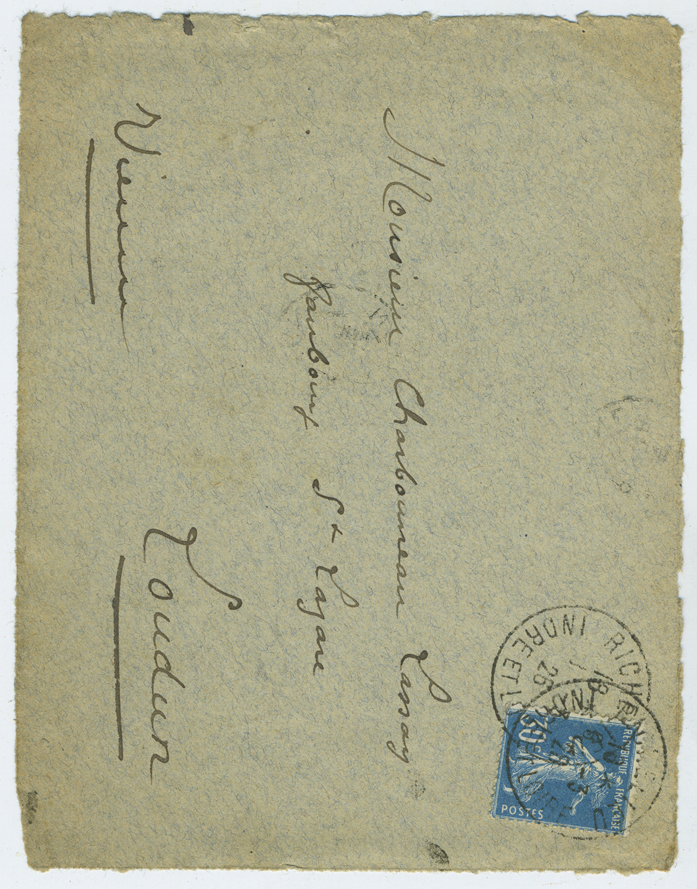 Monsieur Charbonneau Lassay
Faubourg St Lazare
Loudun
Vienne
RICHELIEU
INDRE ET L
REPUBLIQUE FRANÇAISE
POSTES